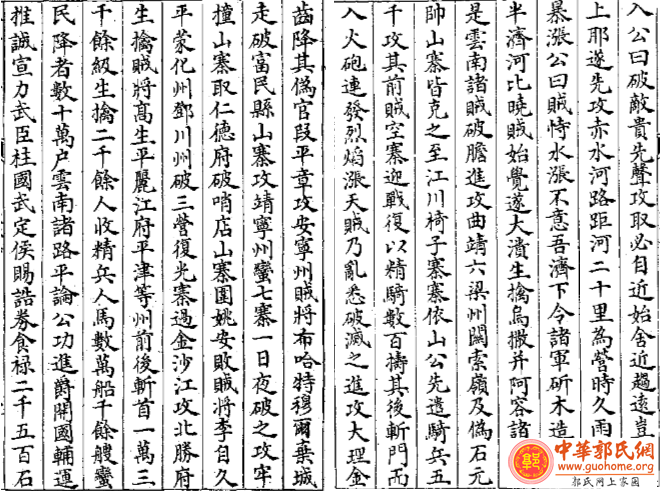 入公曰破敵貴先聲攻取必自近始舍近趨遠豈
上耶遂先攻赤水河路距河二十里為營時久雨
暴漲公曰賊恃水漲不意吾濟下令諸軍斫木造
半濟河比曉賊始覺遂大潰生擒烏撒并阿容諸
是雲南諸賊破膽進攻曲靖六梁州關索嶺及偽石元
帥山寨皆克之至江川椅子寨寨依山公先遣騎兵五
千攻其前賊空寨迎戰復以精騎數百擣其後斬門而
入火砲連發烈焰漲天賊乃亂悉破滅之進攻大理金
齒降其偽官段平章攻安寧州賊將布哈特穆爾棄城
走破富民縣山寨攻靖寧州蠻七寨一日夜破之攻牢
撞山寨取仁德府破哨店山寨圍姚安敗賊將李自久
平蒙化州鄧川州破三營復光寨過金沙江攻北勝府
生擒賊將高生平麗江府平津等州前後斬首一萬三
千餘級生擒二千餘人收精兵人馬數萬船千餘艘蠻
民降者數十萬户雲南諸路平論公功進爵開國輔運
推誠宣力武臣柱國武定侯賜誥券食禄二千五百石
中華郭氏網
www.guohome.org
郭氏网上家园